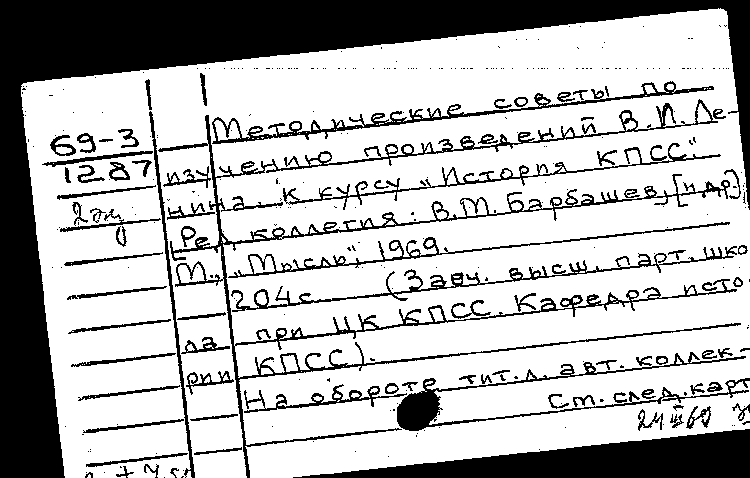 69-3
12.87
2 экз
Методические советы по
изучению произведений В.И. Ле-
нина. К курсу „История КПСС“.
[Ред. коллегия: В.М. Барбашев, [и др.]
М., „Мысль“, 1969.
204 с. (Заоч. высш. парт. шко
ла при ЦК КПСС. Кафедра исто-
рии КПСС).
На обороте тит. л. авт. коллек-
Ст. след. карт
24 III 69